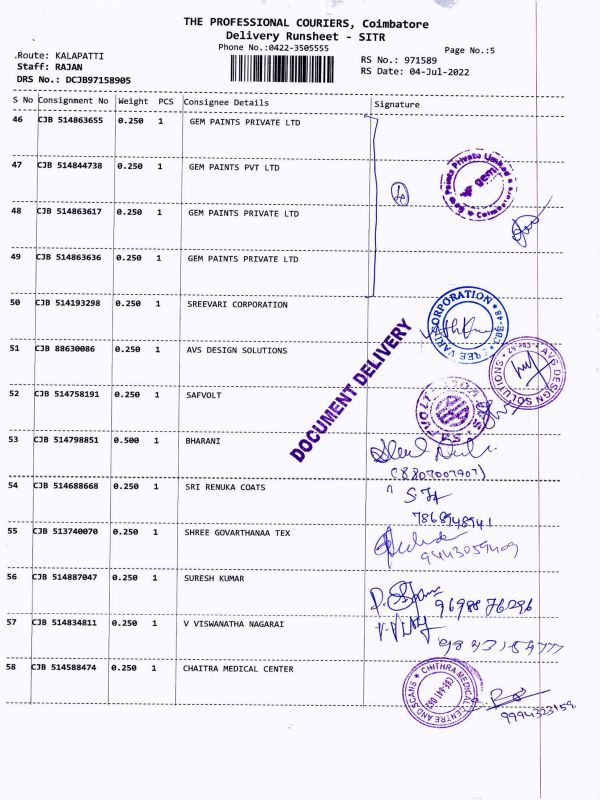 THE PROFESSIONAL COURIERS, Coimbatore
Delivery Runsheet - SITR
Phone No.:0422-3505555
Page No.:5
.Route: KALAPATTI
RS No.: 971589
Staff: RAJAN
RS Date: 04-Jul-2022
DRS No.: DCJB97158905
S No Consignment No Weight PCS Consignee Details Signature
46 CJB 514863655 0.250 1 GEM PAINTS PRIVATE LTD
47 CJB 514844738 0.250 1 GEM PAINTS PVT LTD
Paints Private Limited
gem
Coimbatore
48 CJB 514863617 0.250 1 GEM PAINTS PRIVATE LTD
49 CJB 514863636 0.250 1 GEM PAINTS PRIVATE LTD
50 CJB 514193298 0.250 1 SREEVARI CORPORATION
51 CJB 88630086 0.250 1 AVS DESIGN SOLUTIONS
AVS DESIGN SOLUTIONS
DOCUMENT DELIVERY
52 CJB 514758191 0.250 1 SAFVOLT
53 CJB 514798851 0.500 1 BHARANI
(8807007907)
54 CJB 514688668 0.250 1 SRI RENUKA COATS
7868948941
55 CJB 513740070 0.250 1 SHREE GOVARTHANAA TEX
56 CJB 514887047 0.250 1 SURESH KUMAR
57 CJB 514834811 0.250 1 V VISWANATHA NAGARAI
58 CJB 514588474 0.250 1 CHAITRA MEDICAL CENTER
CHITHRA MEDICAL CENTRE AND SCANS
9994323159